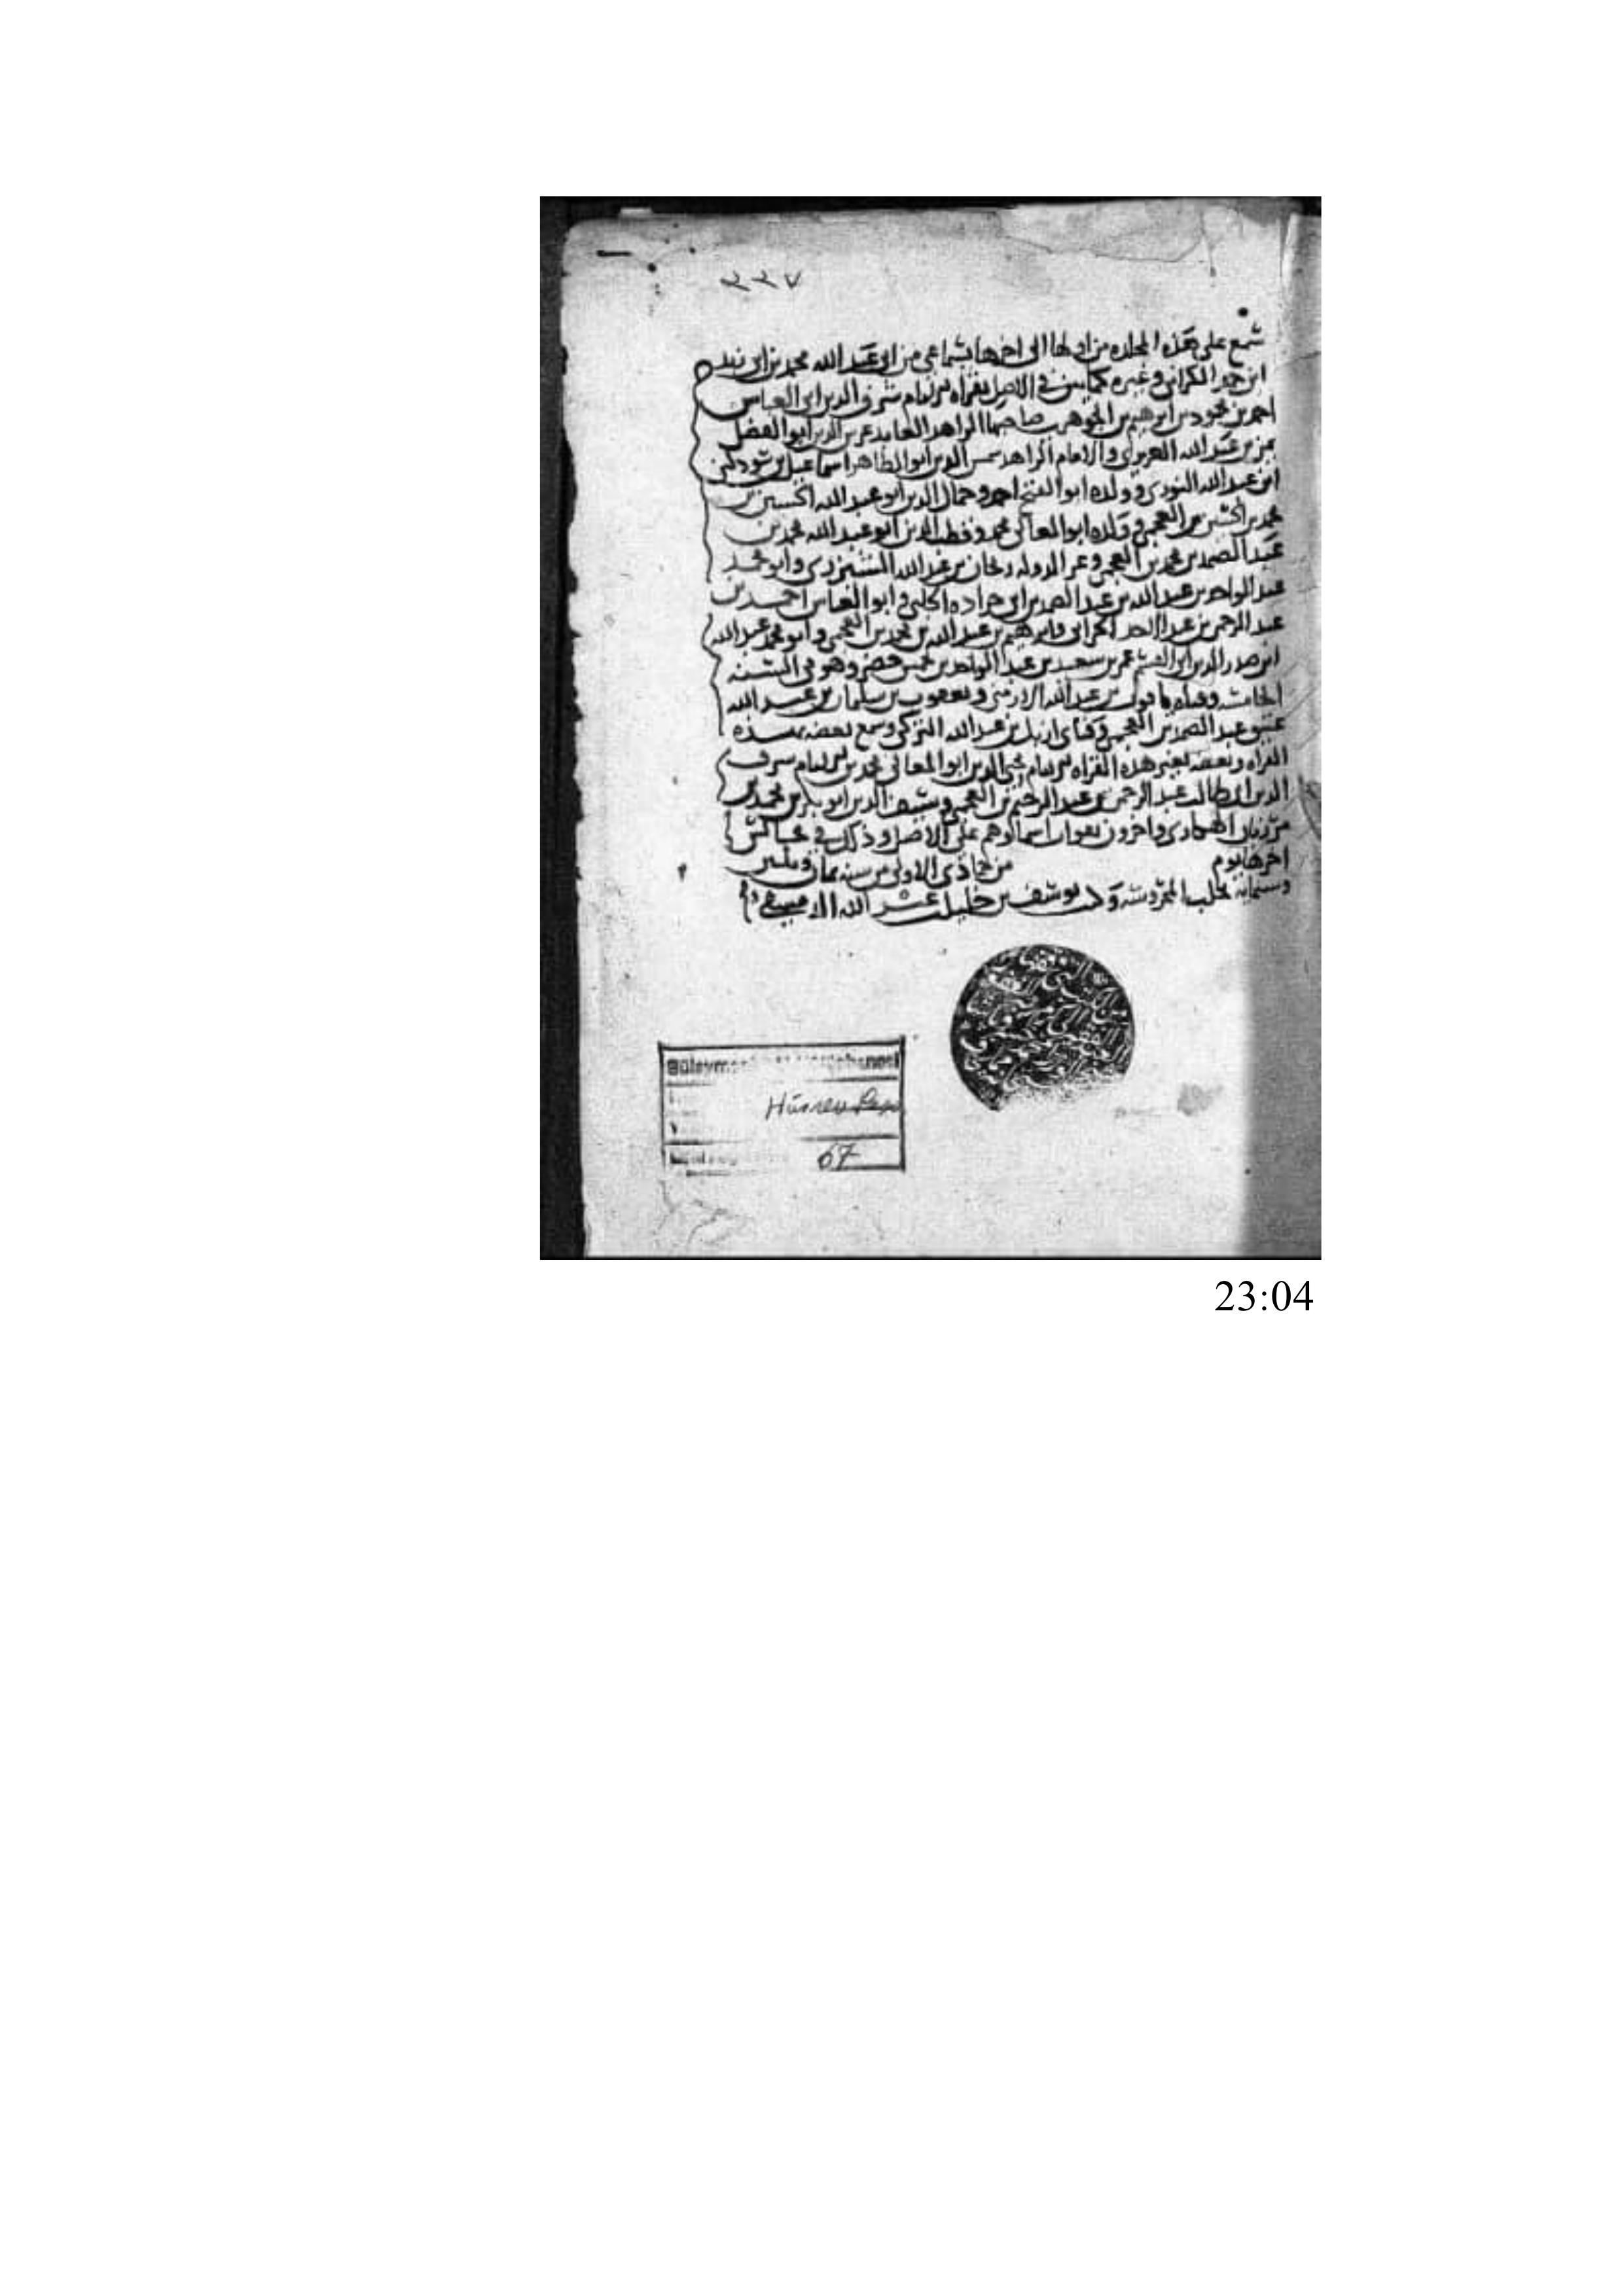 ٢٢٧
سمع على هذه المجلده من اولها الى اخرها بسماعى من ابى عبد الله محمد بن ابى زيد
ابن حمد الكرانى وغيره كما بين فى الاصل بقراه الامام شرف الدين ابى العباس
احمد بن محمود بن ابرهيم بن الجوهرى صاحبها الزاهد العابد عز الدين ابو الفضل
بن عبد الله العزيزى والامام الزاهد شمس الدين ابو الطاهر اسماعيل بن سودكين
ابن عبد الله النورى وولده ابو الفتح احمد وجمال الدين ابو عبد الله الحسين بن
محمد بن الحسين بن العجمى وولده ابو المعالى محمد وقطب الدين ابو عبد الله محمد بن
عبد الصمد بن محمد بن العجمى وعز الدوله بن عبد الله وابو محمد
عبد الواحد بن عبد الله بن عبد الصمد بن ابى جراده الحلبى وابو العباس احمد بن
عبد الرحمن بن عبد الاحد الحرانى وابرهيم بن عبد الله بن محمد بن العجمى وابو محمد عبد الله
ابن صدر الدين ابى القسم عمر بن سعيد بن عبد الواحد بن حضر وهو فى السنه
الخامسه وفتاه ياقوت بن عبد الله الارمنى ويعقوب بن سلمان بن عبد الله
عتيق عبد الصمد بن العجمى وفتاى ازبك بن عبد الله التركى وسمع بعضه بهذه
القراه وبعضه بغير هذه القراه الامام محيى الدين ابو المعالى محمد بن الامام شرف
الدين ابى طالب عبد الرحمن بن عبد الرحيم بن العجمى وسيف الدين ابو بكر بن محمد بن
واخرون بفوات اسماوهم على الاصل وذلك فى مجالس
اخرها يوم من جمادى الاولى من سنه ثمان وثلثين
وستمائة بحلب المحروسه وكتب يوسف بن خليل بن عبد الله الدمشقى
Süleymaniye Kütüphanesi
Hüsrev Paşa
67
23:04